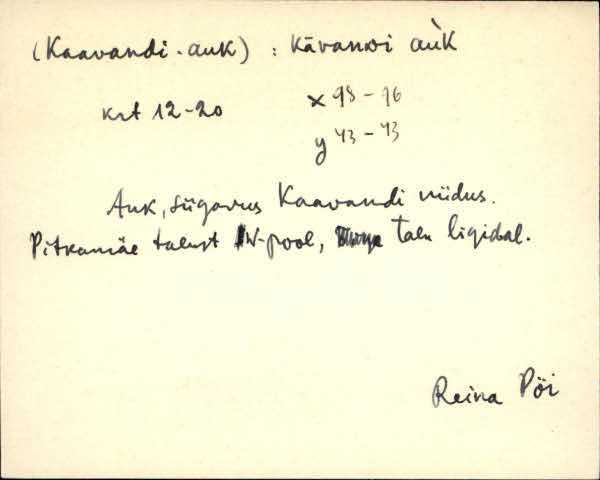 (Kaavandi-auk) : kāvaɴᴅi aùk
krt 12-20 x 98-96
y 43-43
Auk, sügavus Kaavandi niidus.
Pitkamäe talust W-pool, talu ligidal.
Reina Pöi